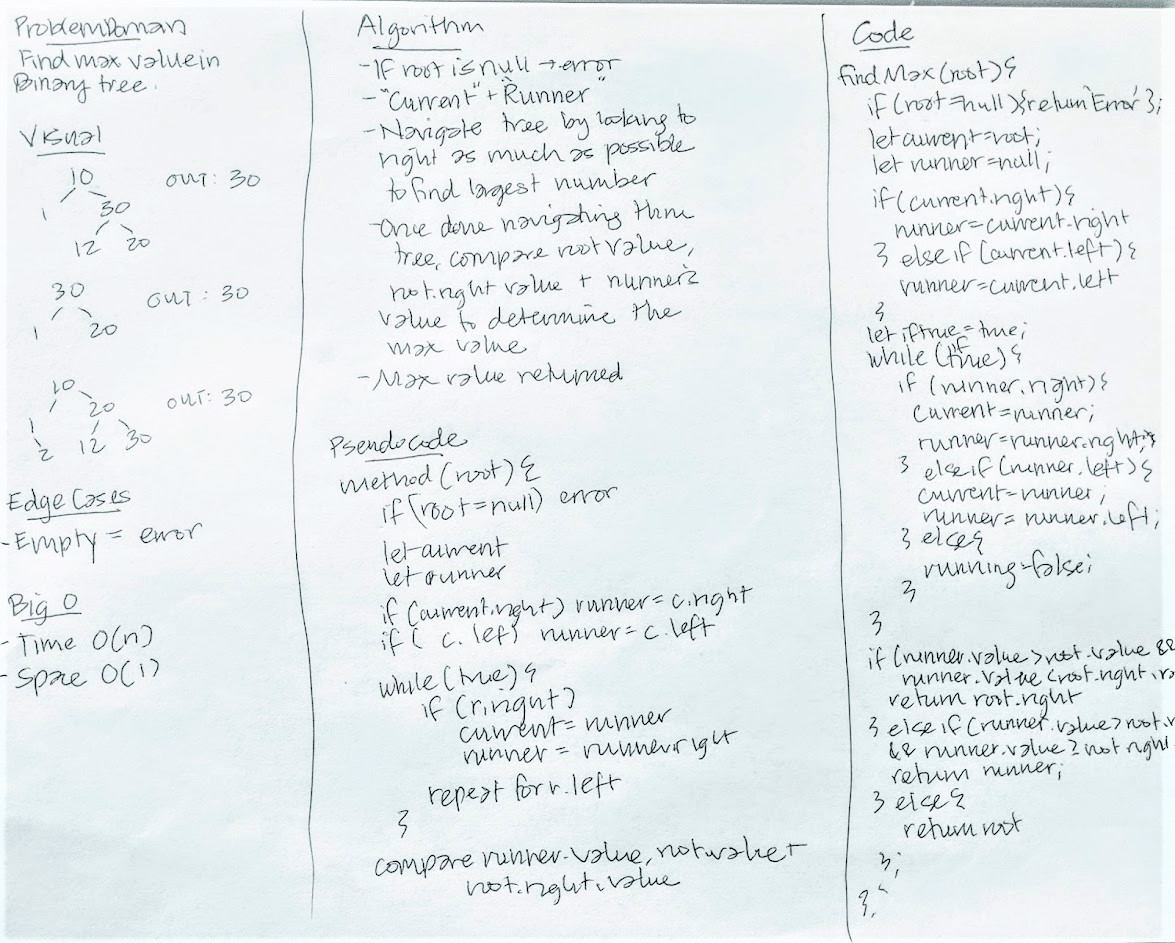 Problem Domain
Find max value in
Binary tree.
Visual
10
OUT: 30
1
30
12 20
30
OUT: 30
1
20
10
OUT: 30
1
20
2 12 30
Edge Cases
- Empty = error
Big O
- Time O(n)
- Space O(1)
Algorithm
- If root is null → error
- "Current" + "Runner"
- Navigate tree by looking to
right as much as possible
to find largest number
- Once done navigating thru
tree, compare root value,
root.right value + runner's
value to determine the
max value
- Max value returned
Pseudocode
method (root) {
if (root = null) error
let current
let runner
if (current.right) runner = c.right
if ( c. lef) runner = c.left
while (true) {
if (r.right)
current = runner
runner = runner.right
repeat for r.left
}
compare runner.value, root value +
root.right.value
Code
find Max (root) {
if (root = null) { return 'Error' };
let current = root;
let runner = null;
if (current.right) {
runner = current.right
} else if (current.left) {
runner = current.left
}
let iftrue = true;
while (iftrue) {
if (runner.right) {
current = runner;
runner = runner.right;
} else if (runner.left) {
current = runner;
runner = runner.left;
} else {
running = false;
}
}
if (runner.value > root.value &&
runner.value < root.right.va
return root.right
} else if (runner.value > root.v
&& runner.value ≥ root right
return runner;
} else {
return root
};
};